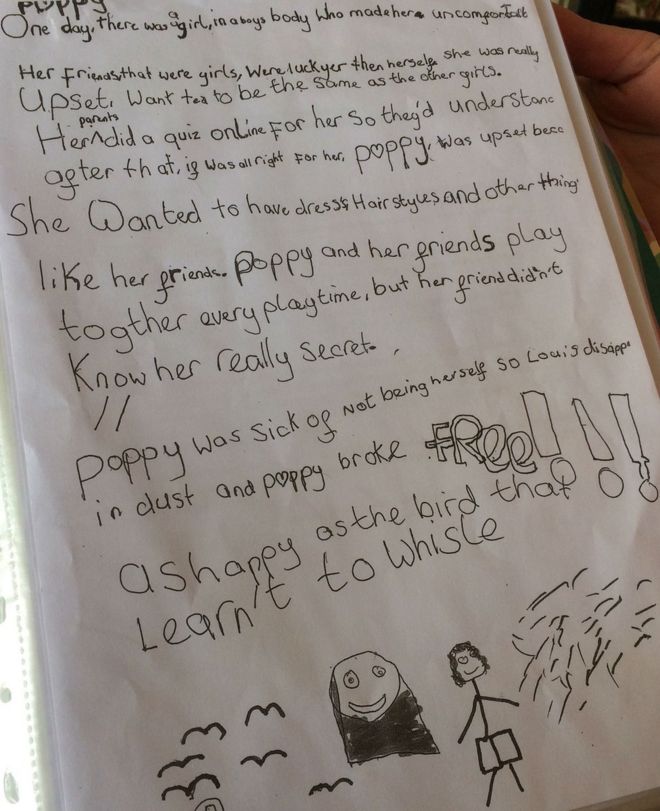 poppy
One day, there was a girl, in a boys body who made her uncomfortable
Her friends, that were girls, were luckyer then herself. She was really
Upset, want ted to be the same as the other girls.
Her parents did a quiz online for her so they'd understand
after that, it was all right for her, poppy, was upset beca
She Wanted to have dress's Hair styles and other thing
like her friends. poppy and her friends play
togther every playtime, but her friend didn't
Know her really Secret.
//
poppy was sick of not being herself so Louis disappe
in dust and poppy broke FRee!!!
as happy as the bird that
Learn't to whisle